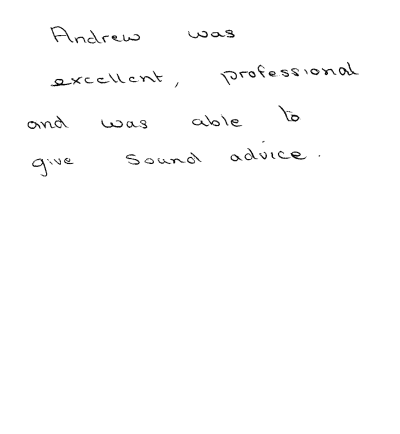 Andrew was
excellent, professional
and was able to
give sound advice.